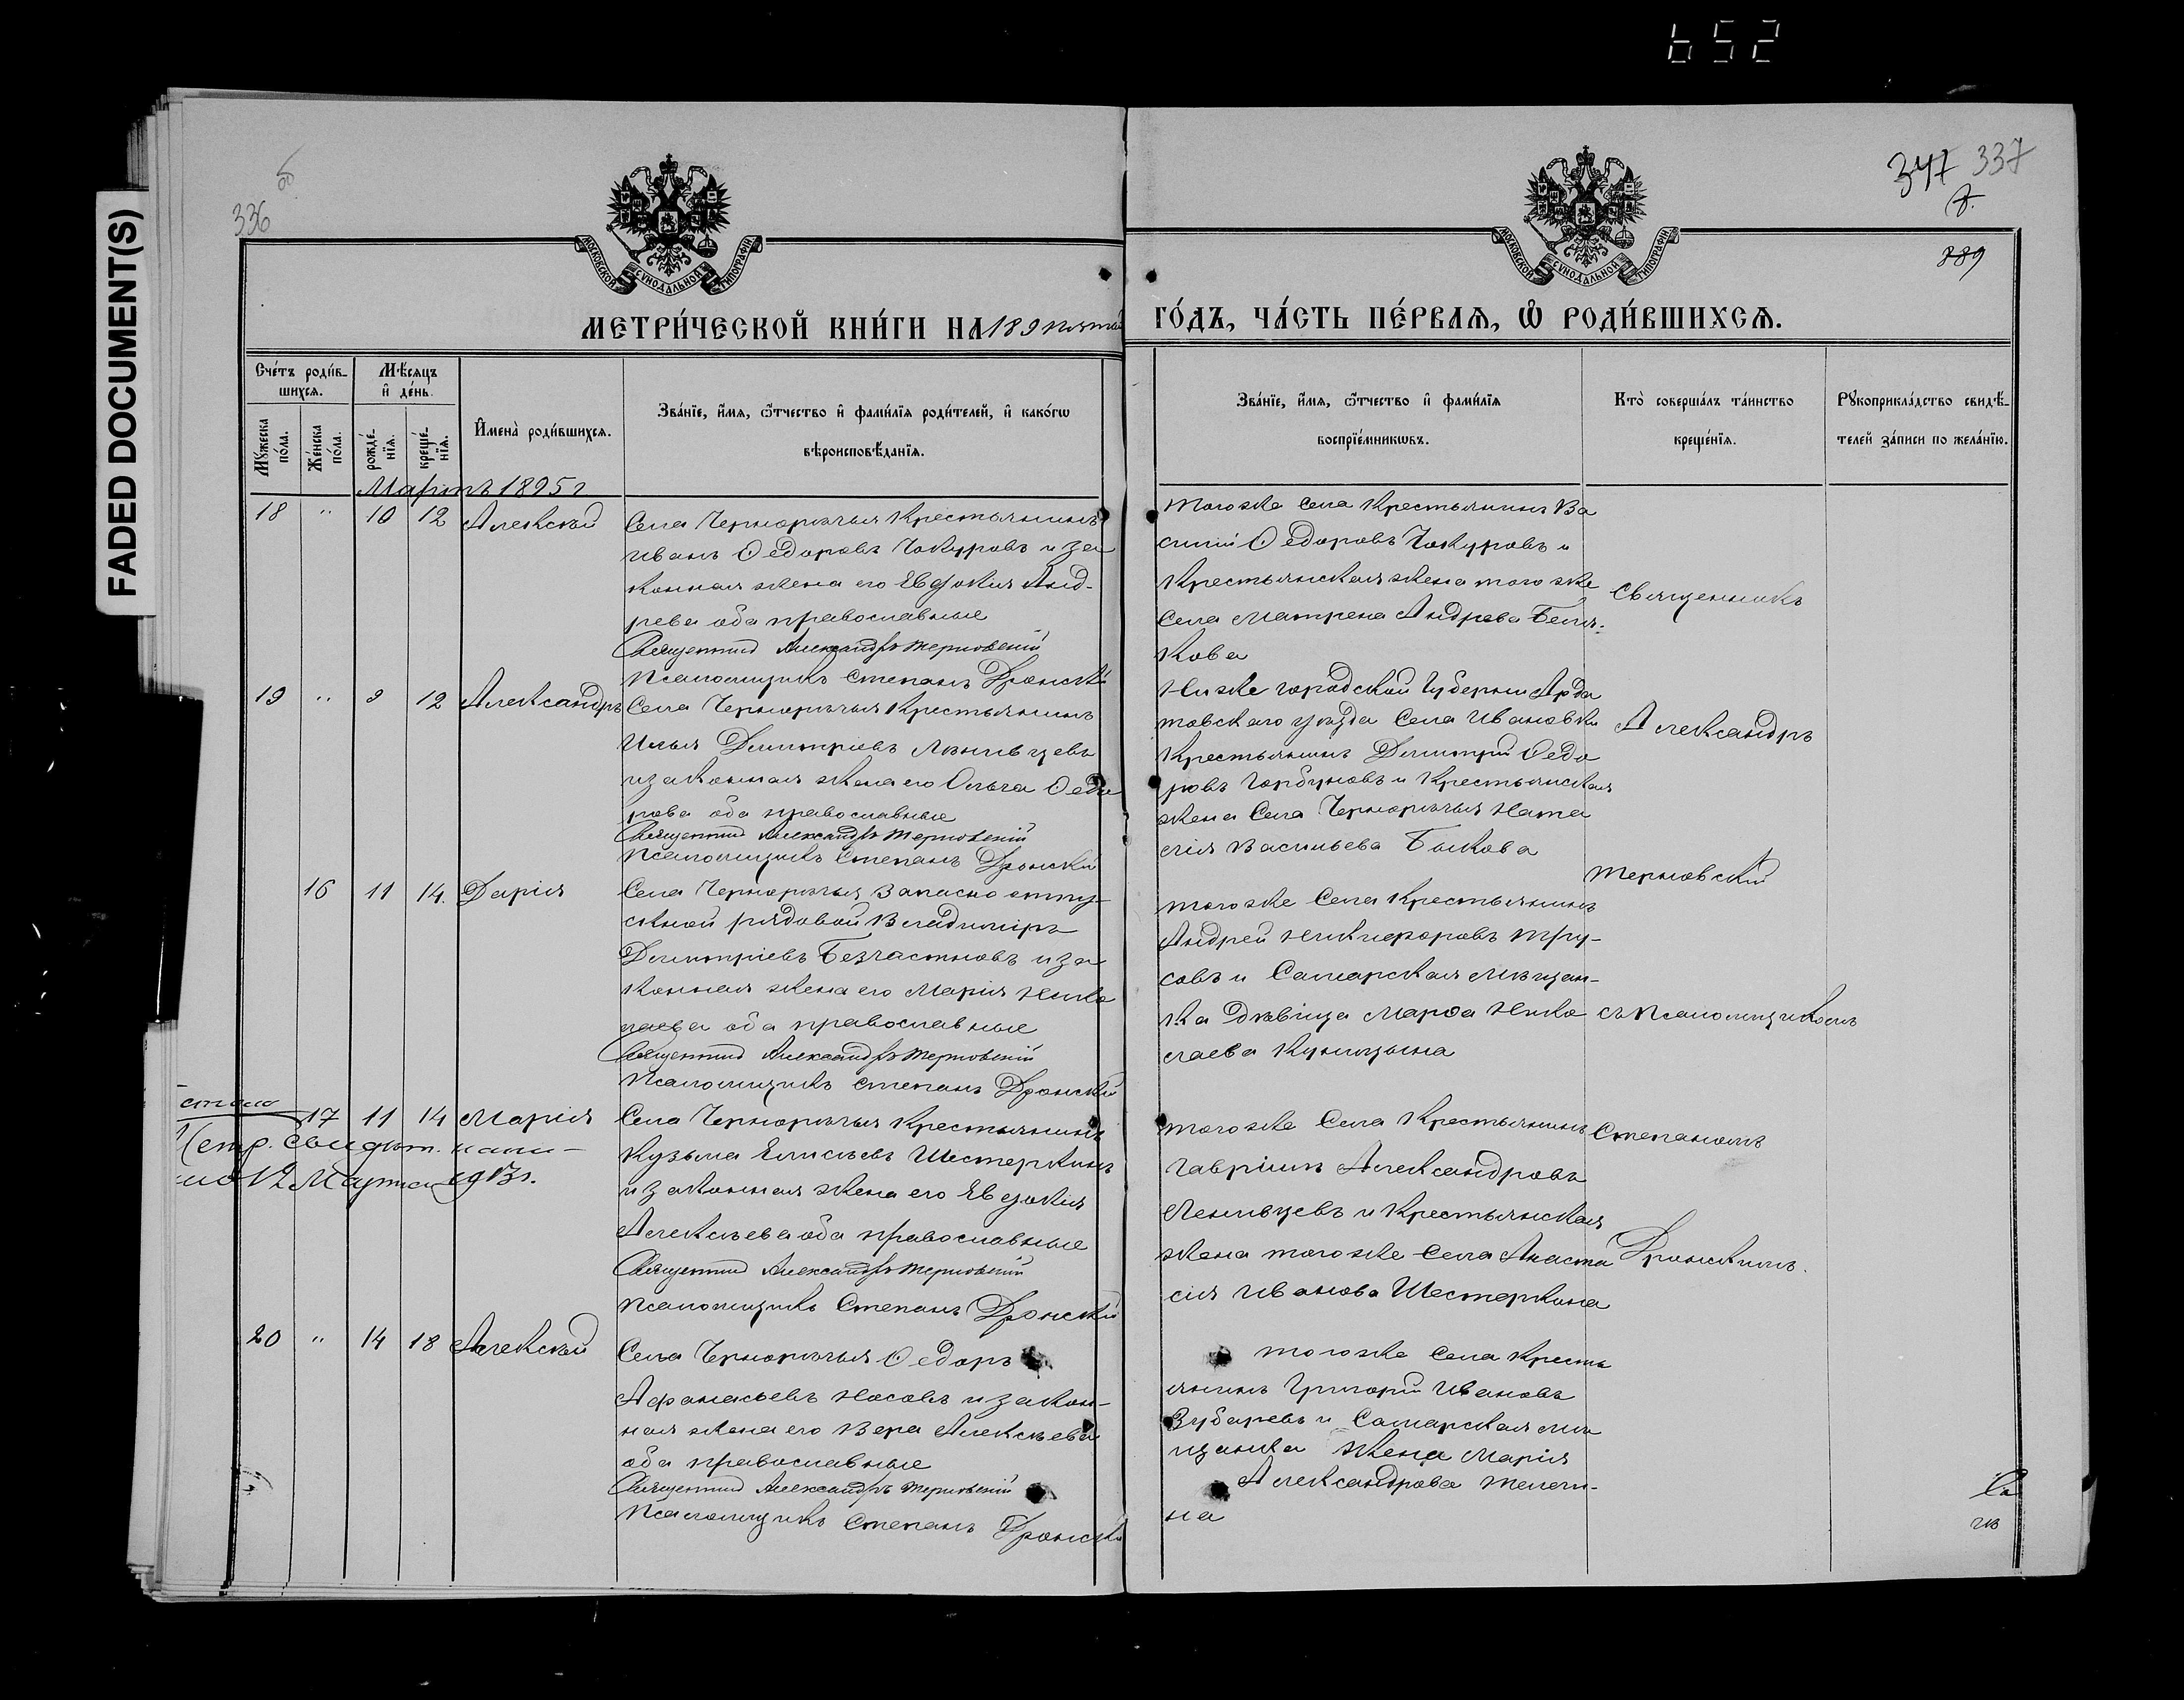 652
FADED DOCUMENT(S)
336
347 337
889
МОСКОВСКОЙ СѴНОДАЛЬНОЙ ТИПОГРАФІИ
МОСКОВСКОЙ СѴНОДАЛЬНОЙ ТИПОГРАФІИ
МЕТРИ́ЧЕСКОЙ КНИ́ГИ НА 189 пятый
ГО́ДЪ, ЧА́СТЬ ПЕ́РВАѦ, Ѡ҆ РОДИ́ВШИХСѦ.
Сче́тъ роди́в-
шихсѧ.
Мѣ́сѧцъ
и҆ де́нь.
Мꙋ́жеска по́ла.
Же́нска по́ла.
рожде́-
нїѧ.
креще́-
нїѧ.
И҆мена̀ роди́вшихсѧ.
Зва́нїе, и҆́мѧ, ѻ҆́тчество и҆ фами́лїѧ роди́телей, и҆ како́гѡ
вѣроисповѣ́данїѧ.
Зва́нїе, и҆́мѧ, ѻ҆́тчество и҆ фами́лїѧ
воспрїе́мникѡвъ.
Кто̀ соверша́лъ та́инство
креще́нїѧ.
Рꙋкоприкла́дство свидѣ́-
телей за́писи по жела́нїю.
Мартъ 1895 г
18 " 10 12 Алексѣй
Села Черноречья Крестьянинъ
Иванъ Ѳедоровъ Чокуровъ и за
конная жена его Евдокия Анд-
рева оба православные
Священник Александръ Терновский
Псаломщикъ Степанъ Дронский
Того же села Крестьянинъ Ва
силій Ѳедоровъ Чокуровъ и
Крестьянская жена того же
села Матрена Андрева Беля-
кова
19 " 9 12 Александръ
Села Черноречья Крестьянинъ
Илья Димитріевъ Лѣнивцевъ
и законная жена его Ольга Ѳедо
рова оба православные
Священник Александръ Терновский
Псаломщикъ Степанъ Дронский
Ниже городской Губернии Арда
товскаго уѣзда Села Ивановки
Крестьянинъ Димитрий Ѳедо
ровъ Горбуновъ и Крестьянская
жена Села Черноречья Ната
лія Васильева Быкова
16 11 14. Дарія
Села Черноречья, Запасно отпу-
скной рядовой Владиміръ
Димитріевъ Безчастновъ и за
конная жена его Марія Нико
лаева оба православные
Священник Александръ Терновский
Псаломщикъ Степанъ Дронский
Того же Села Крестьянинъ
Андрей Никифоровъ Тру-
совъ и Самарская Мещан-
ка дѣвица Марѳа Нико
лаева Куницына
17 11 14 Марія
Метр. свидѣт.
12 Марта 1913 г.
Села Черноречья Крестьянинъ
Кузьма Елисѣевъ Шестеркинъ
и законная жена его Евдокія
Алексѣева оба православные
Священник Александръ Терновский
Псаломщикъ Степанъ Дронский
Того же Села Крестьянинъ
Гавріилъ Александровъ
Ленивцевъ и Крестьянская
жена того же Села Анаста
сия Иванова Шестеркина
20 " 14 18 Алексѣй
Села Черноречья Ѳедоръ
Афанасьевъ Носовъ и закон-
ная жена его Вера Алексѣева
оба православные
Священник Александръ Терновский
Псаломщикъ Степанъ Дронский
Того же Села Кресть
янинъ Григорій Ивановъ
Зубаревъ и Самарская ме
щанка жена Марія
Александрова
на
Священникъ
Александръ
Терновский
съ псаломщикомъ
Степаномъ
Дронскимъ.